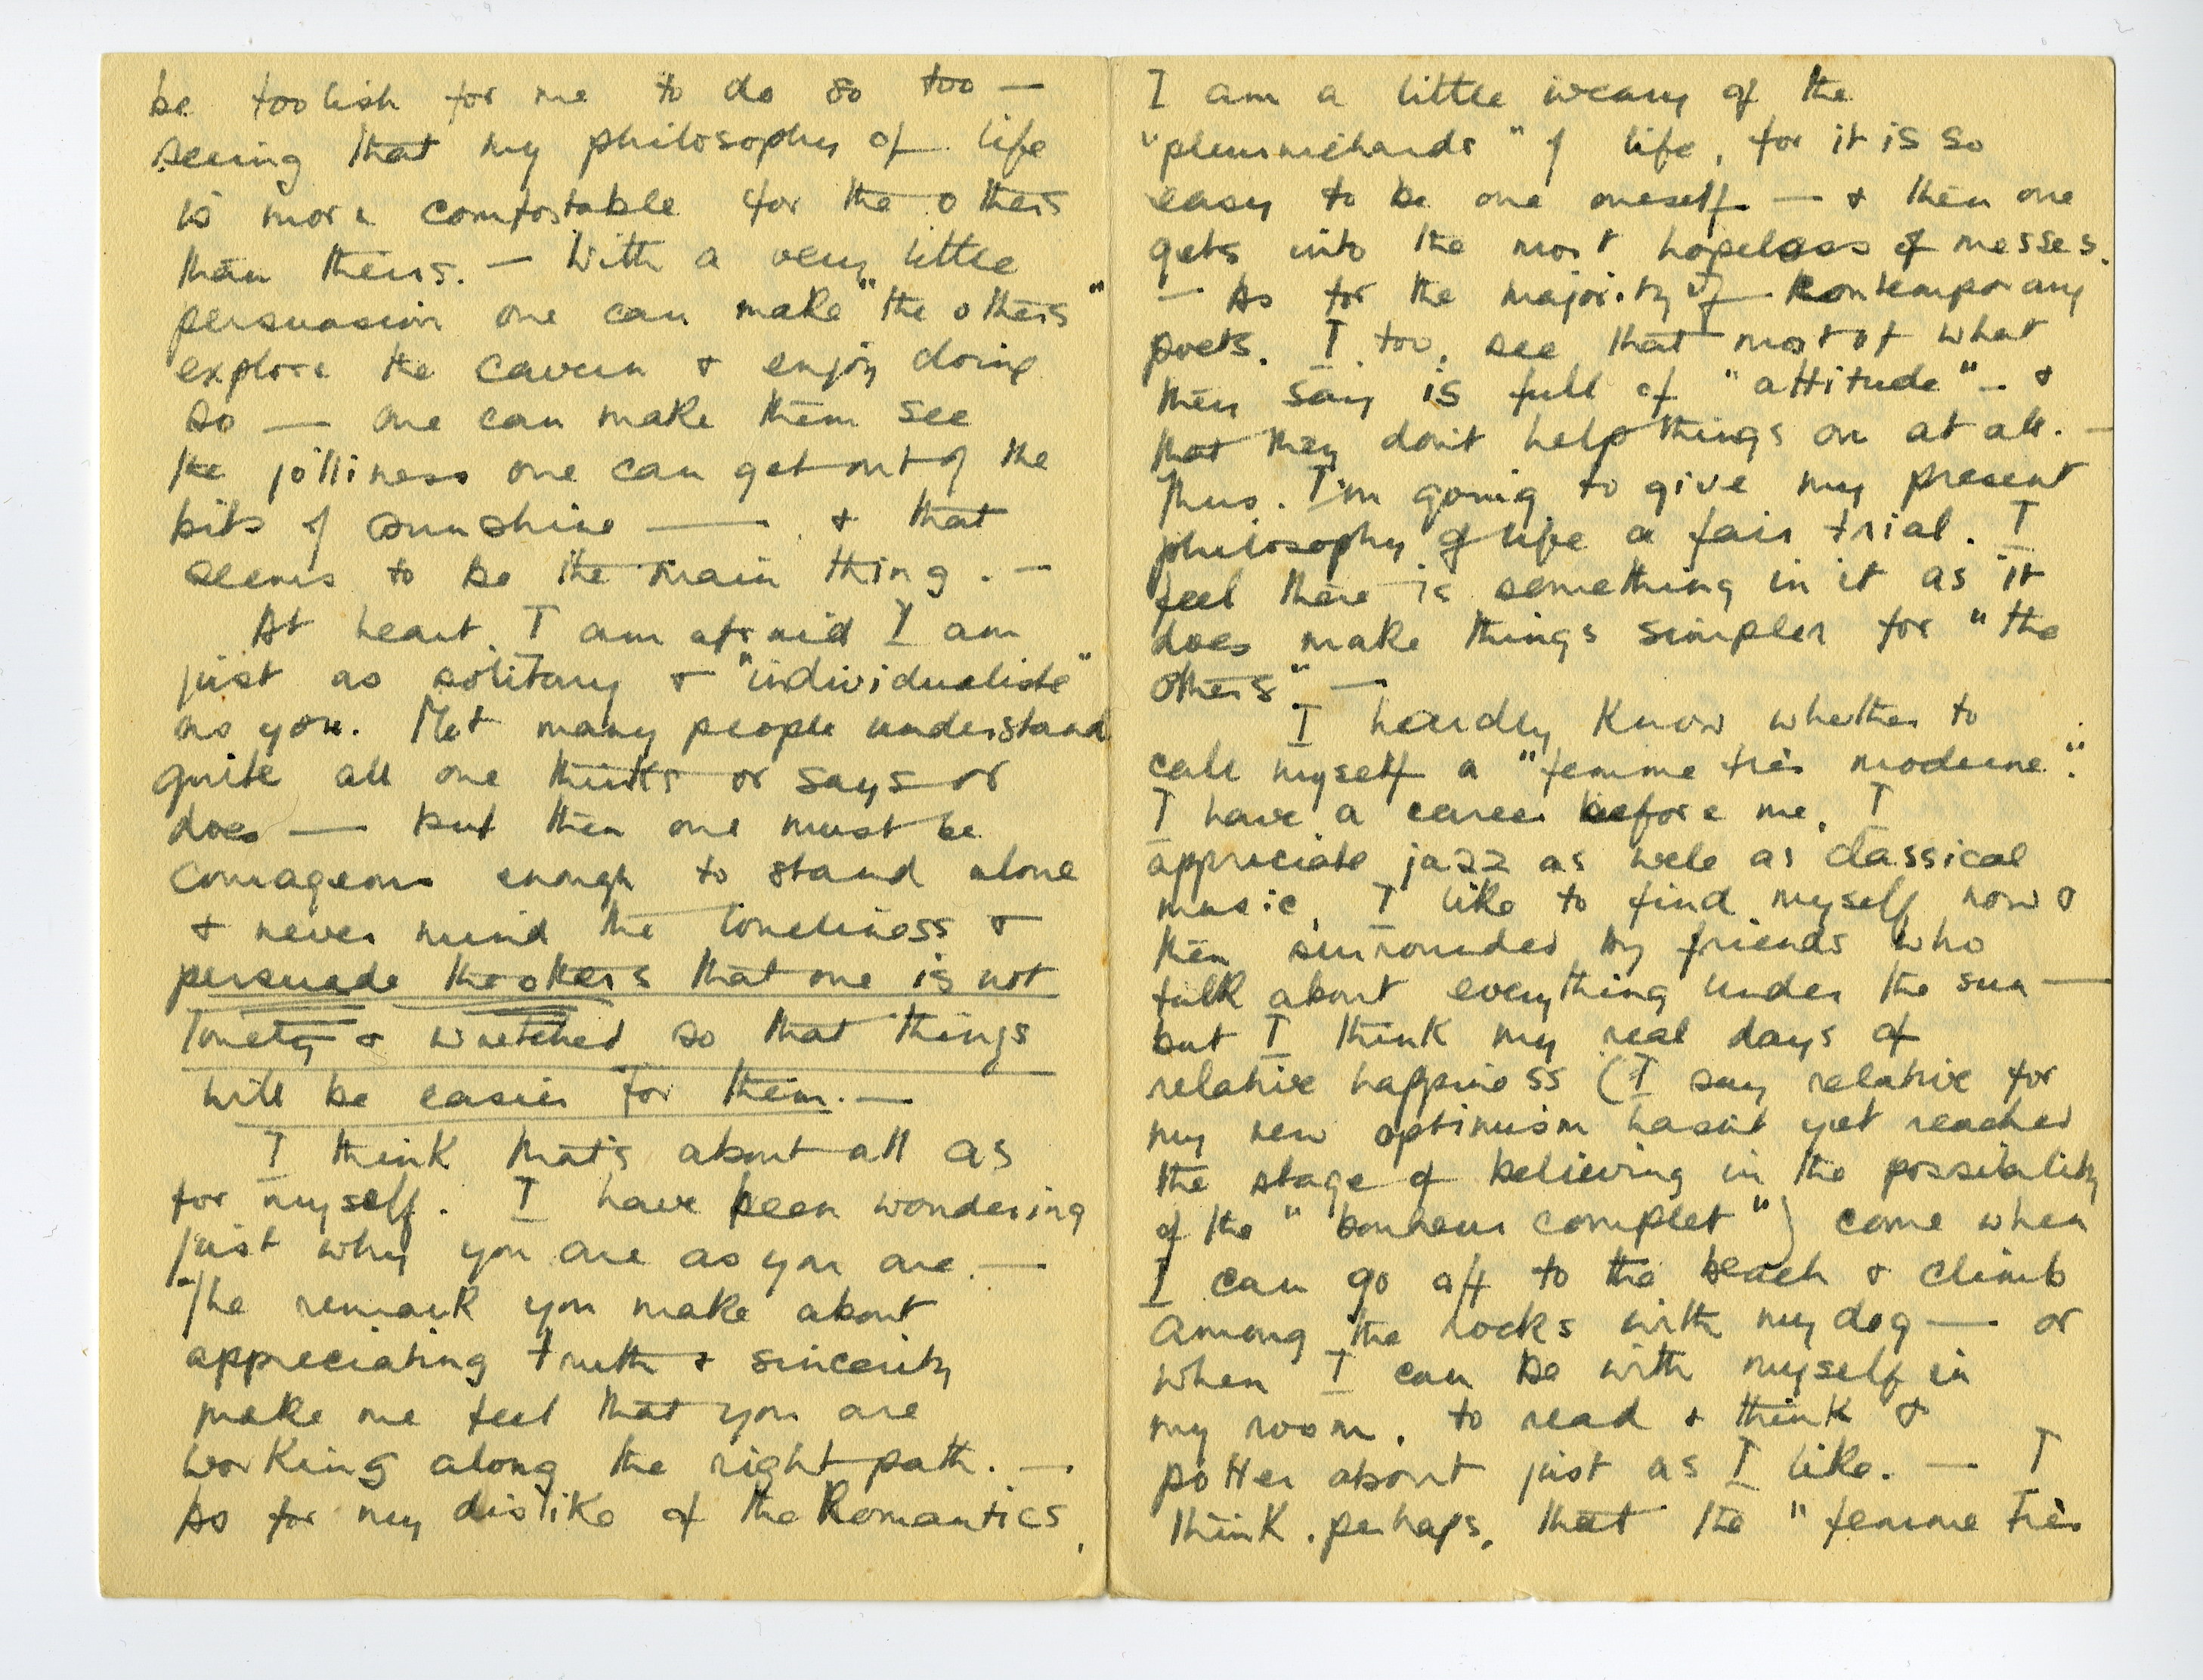 be foolish for me to do so too —
seeing that my philosophy of life
is more comfortable for the others
than theirs. — With a very little
persuasion one can make "the others"
explore the cavern & enjoy doing
so — one can make them see
the jolliness one can get out of the
bits of sunshine — & that
seems to be the main thing. —
At heart, I am afraid I am
just as solitary & "individualiste"
as you. Not many people understand
quite all one thinks or says or
does — but then one must be
courageous enough to stand alone
& never mind the loneliness &
persuade the others that one is not
lonely & wretched so that things
will be easier for them. —
I think that's about all as
for myself. I have been wondering
just why you are as you are. —
The remark you make about
appreciating truth & sincerity
make me feel that you are
working along the right path. —
As for my dislike of the Romantics,
I am a little weary of the
"pleurnichards" of life, for it is so
easy to be one oneself — & then one
gets into the most hopeless of messes.
— As for the majority of contemporary
poets. I, too, see that most of what
they say is full of "attitude" — &
that they don't help things on at all. —
Thus. I'm going to give my present
philosophy of life a fair trial. I
feel there is something in it as it
does make things simpler for "the
others". —
I hardly know whether to
call myself a "femme très moderne".
I have a career before me, I
appreciate jazz as well as classical
music, I like to find myself now &
then surrounded by friends who
talk about everything under the sun —
but I think my real days of
relative happiness (I say relative for
my new optimism hasn't yet reached
the stage of believing in the possibility
of the "bonheur complet") come when
I can go off to the beach & climb
among the rocks with my dog — or
when I can be with myself in
my room, to read & think &
potter about just as I like. — I
think, perhaps, that the "femme très